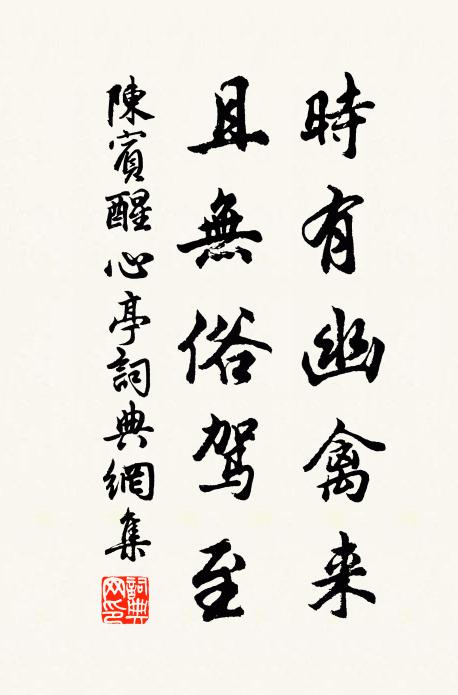 時有幽禽来
且無俗駕至
陳賓醒心亭詞典網集
詞典網印